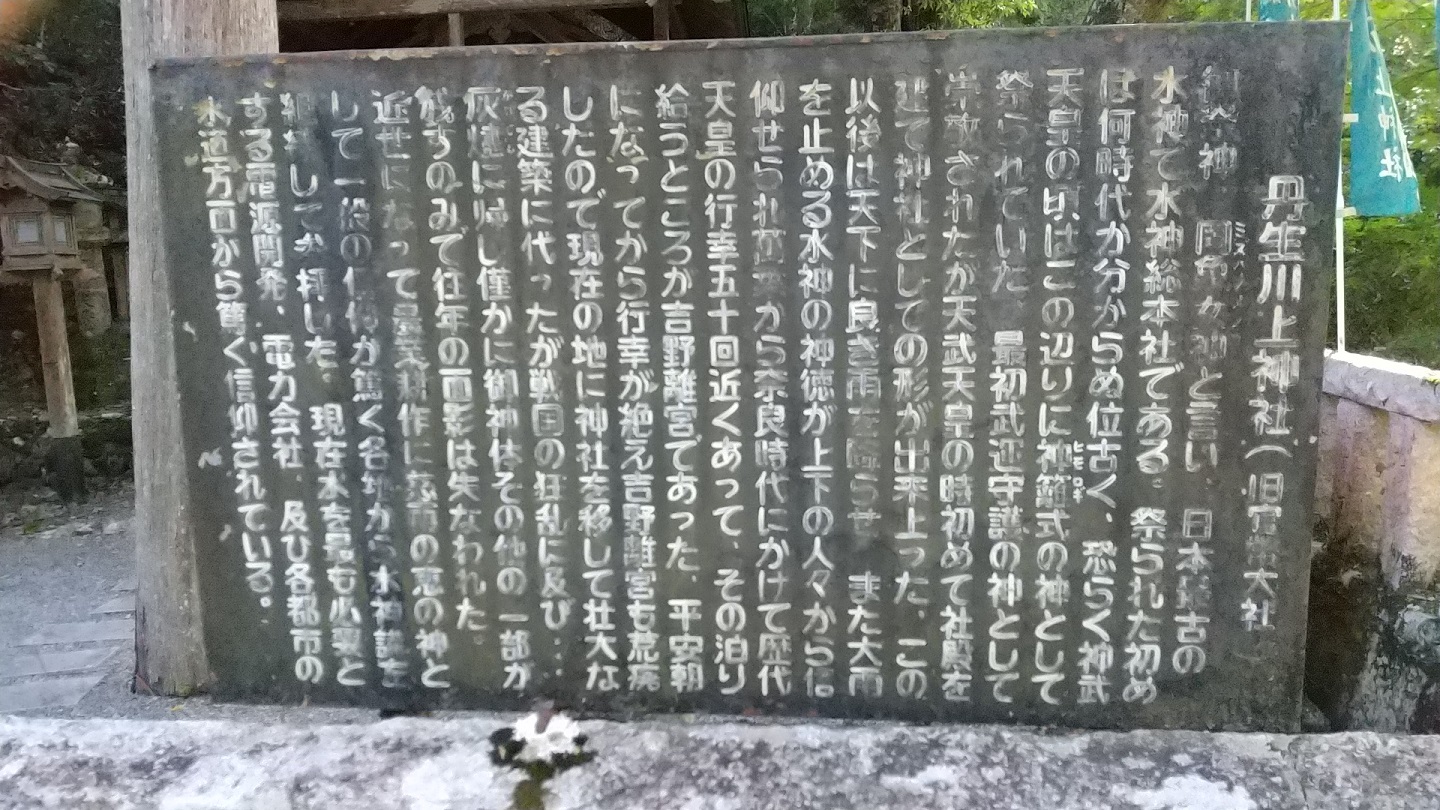 丹生川上神社(旧官幣大社)
御祭神 罔象女神と言い、日本最古の
ミズハノメノ
水神で水神総本社である。祭られた初め
は何時代か分からぬ位古く、恐らく神武
天皇の頃はこの辺りに神籬式の神として
ヒモロギ
祭られていた 最初武運守護の神として
崇敬されたが天武天皇の時初めて社殿を
建て神社としての形が出来上った、この
以後は天下に良き雨を降らせ また大雨
を止める水神の神徳が上下の人々から信
仰せられ から奈良時代にかけて歴代
天皇の行幸五十回近くあって、その泊り
給うところが吉野離宮であった、平安朝
になってから行幸が絶え吉野離宮も荒廃
したので現在の地に神社を移して壮大な
る建築に代ったが戦国の狂乱に及び…
灰燼に帰し僅かに御神体その他の一部が
残すのみで往年の面影は失なわれた。
近世になって農業耕作に慈雨の恵の神と
して一般の信仰が篤く各地から水神講を
組織して参拝した。現在水を最も必要と
する電源開発、電力会社、及び各都市の
水道方面から篤く信仰されている。
上神社